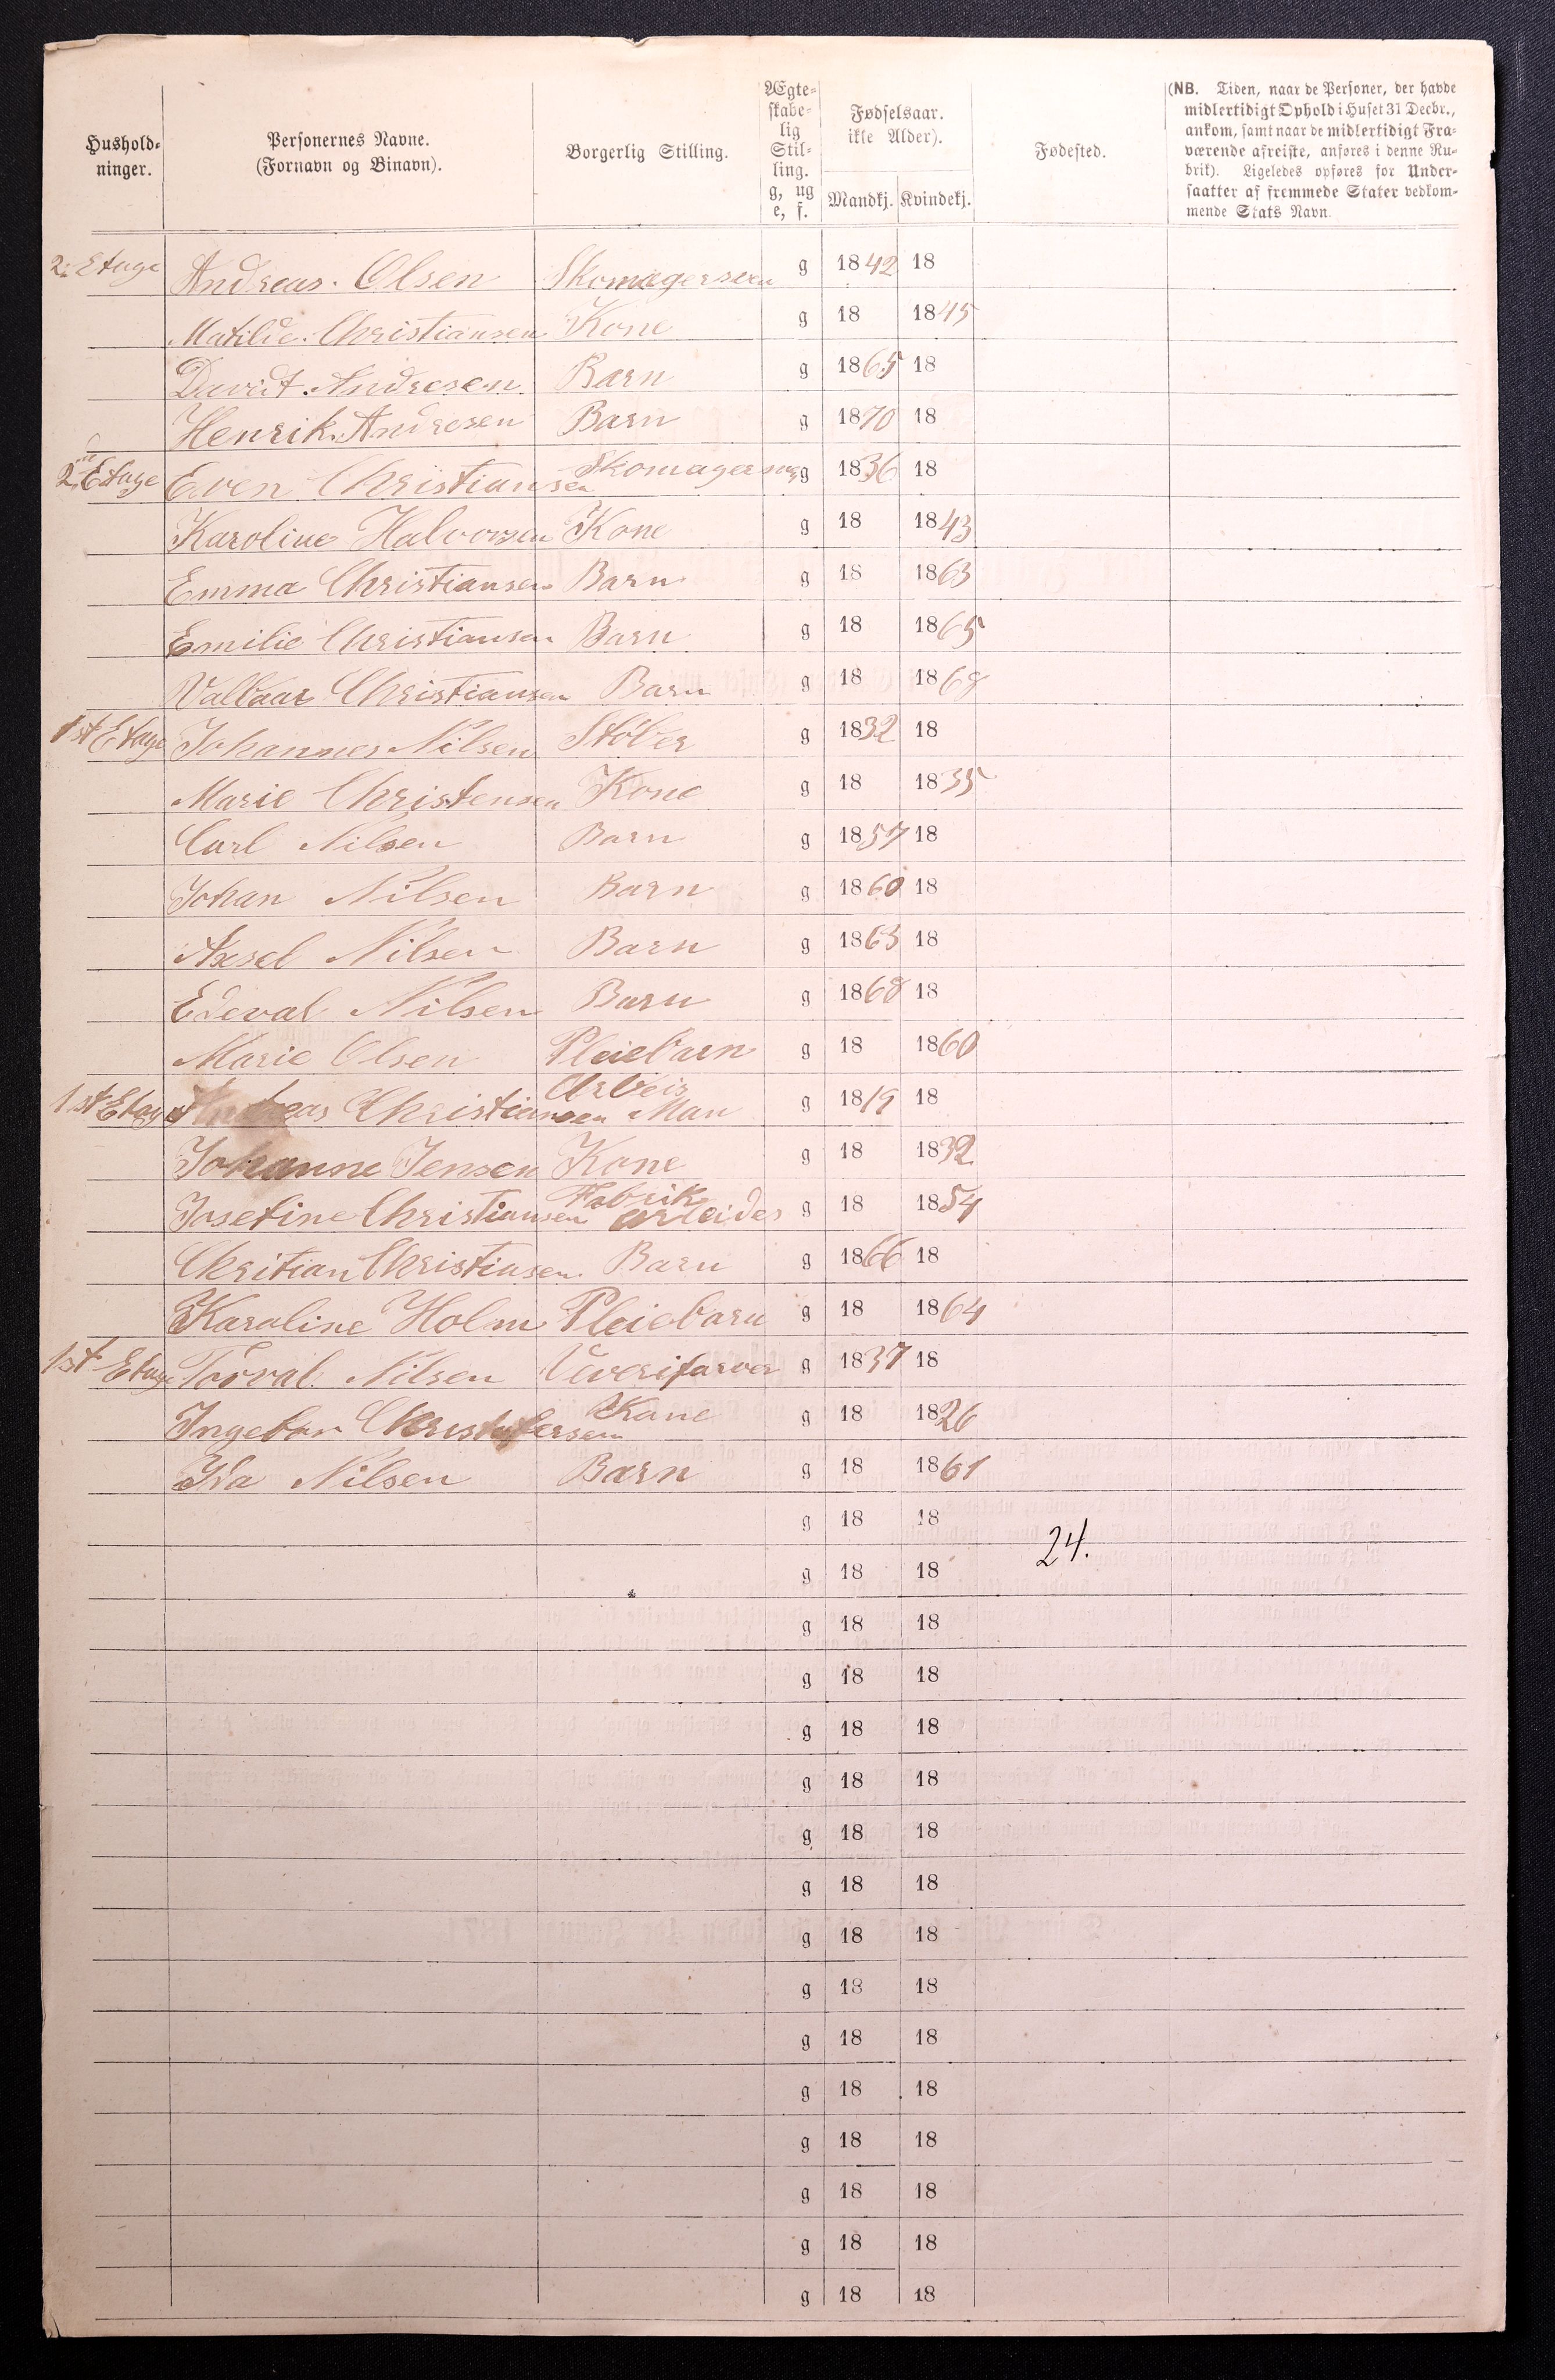 Hushold-
ninger.
Personernes Navne.
(Fornavn og Binavn).
Borgerlig Stilling.
Ægte-
skabe-
lig
Stil-
ling.
g, ug
e, f.
Fødselsaar.
ikke Alder).
Mandkj. Kvindekj.
Fødested.
(NB. Tiden, naar de Personer, der havde
midlertidigt Ophold i Huset 31 Decbr.,
ankom, samt naar de midlertidigt Fra-
værende afreiste, anføres i denne Ru-
brik). Ligeledes opføres for Under-
saatter af fremmede Stater vedkom-
mende Stats Navn.
2. Etage Andreas. Olsen Skomagersven g 1842 18
Matilde. Christiansen Kone g 18 1845
Davidt. Andresen Barn g 1865 18
Henrik. Andresen Barn g 1870 18
2 Etage Even Christiansen Skomagersven g 1836 18
Karoline Halvorsen Kone g 18 1843
Emma Christiansen Barn g 18 1863
Emilie Christiansen Barn g 18 1865
Valbaar Christiansen Barn g 18 1868
1st Etage Johannes Nilsen Støber g 1832 18
Marie Christensen Kone g 18 1835
Carl Nilsen Barn g 1857 18
Johan Nilsen Barn g 1860 18
Axsel Nilsen Barn g 1863 18
Edeval Nilsen Barn g 1868 18
Marie Olsen Pleiebarn g 18 1860
1st Etag Andreas Christiansen Arbeis Man g 1819 18
Johanne Jensen Kone g 18 1832
Josefine Christiansen Fabrik arbeider g 18 1854
Chritian Christiasen Barn g 1866 18
Karaline Holm Pleiebarn g 18 1864
1st Etage Torval Nilsen Veverifarver g 1837 18
Ingebor Christofersen Kone g 18 1826
Ida Nilsen Barn g 18 1861
g 18 18
24.
g 18 18
g 18 18
g 18 18
g 18 18
g 18 18
g 18 18
g 18 18
g 18 18
g 18 18
g 18 18
g 18 18
g 18 18
g 18 18
g 18 18
g 18 18